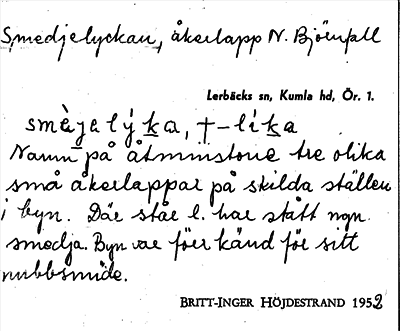 Smedjelyckan, åkerlapp N. Björnfall
Lerbäcks sn, Kumla hd, Ör. 1.
smè̱jelýḵa, †-líḵa
Namn på åtminstone tre olika
små åkerlappar på skilda ställen
i byn. Där står l. har stått ngn
smedja. Byn var förr känd för sitt
nubbsmide.
BRITT-INGER HÖJDESTRAND 1952